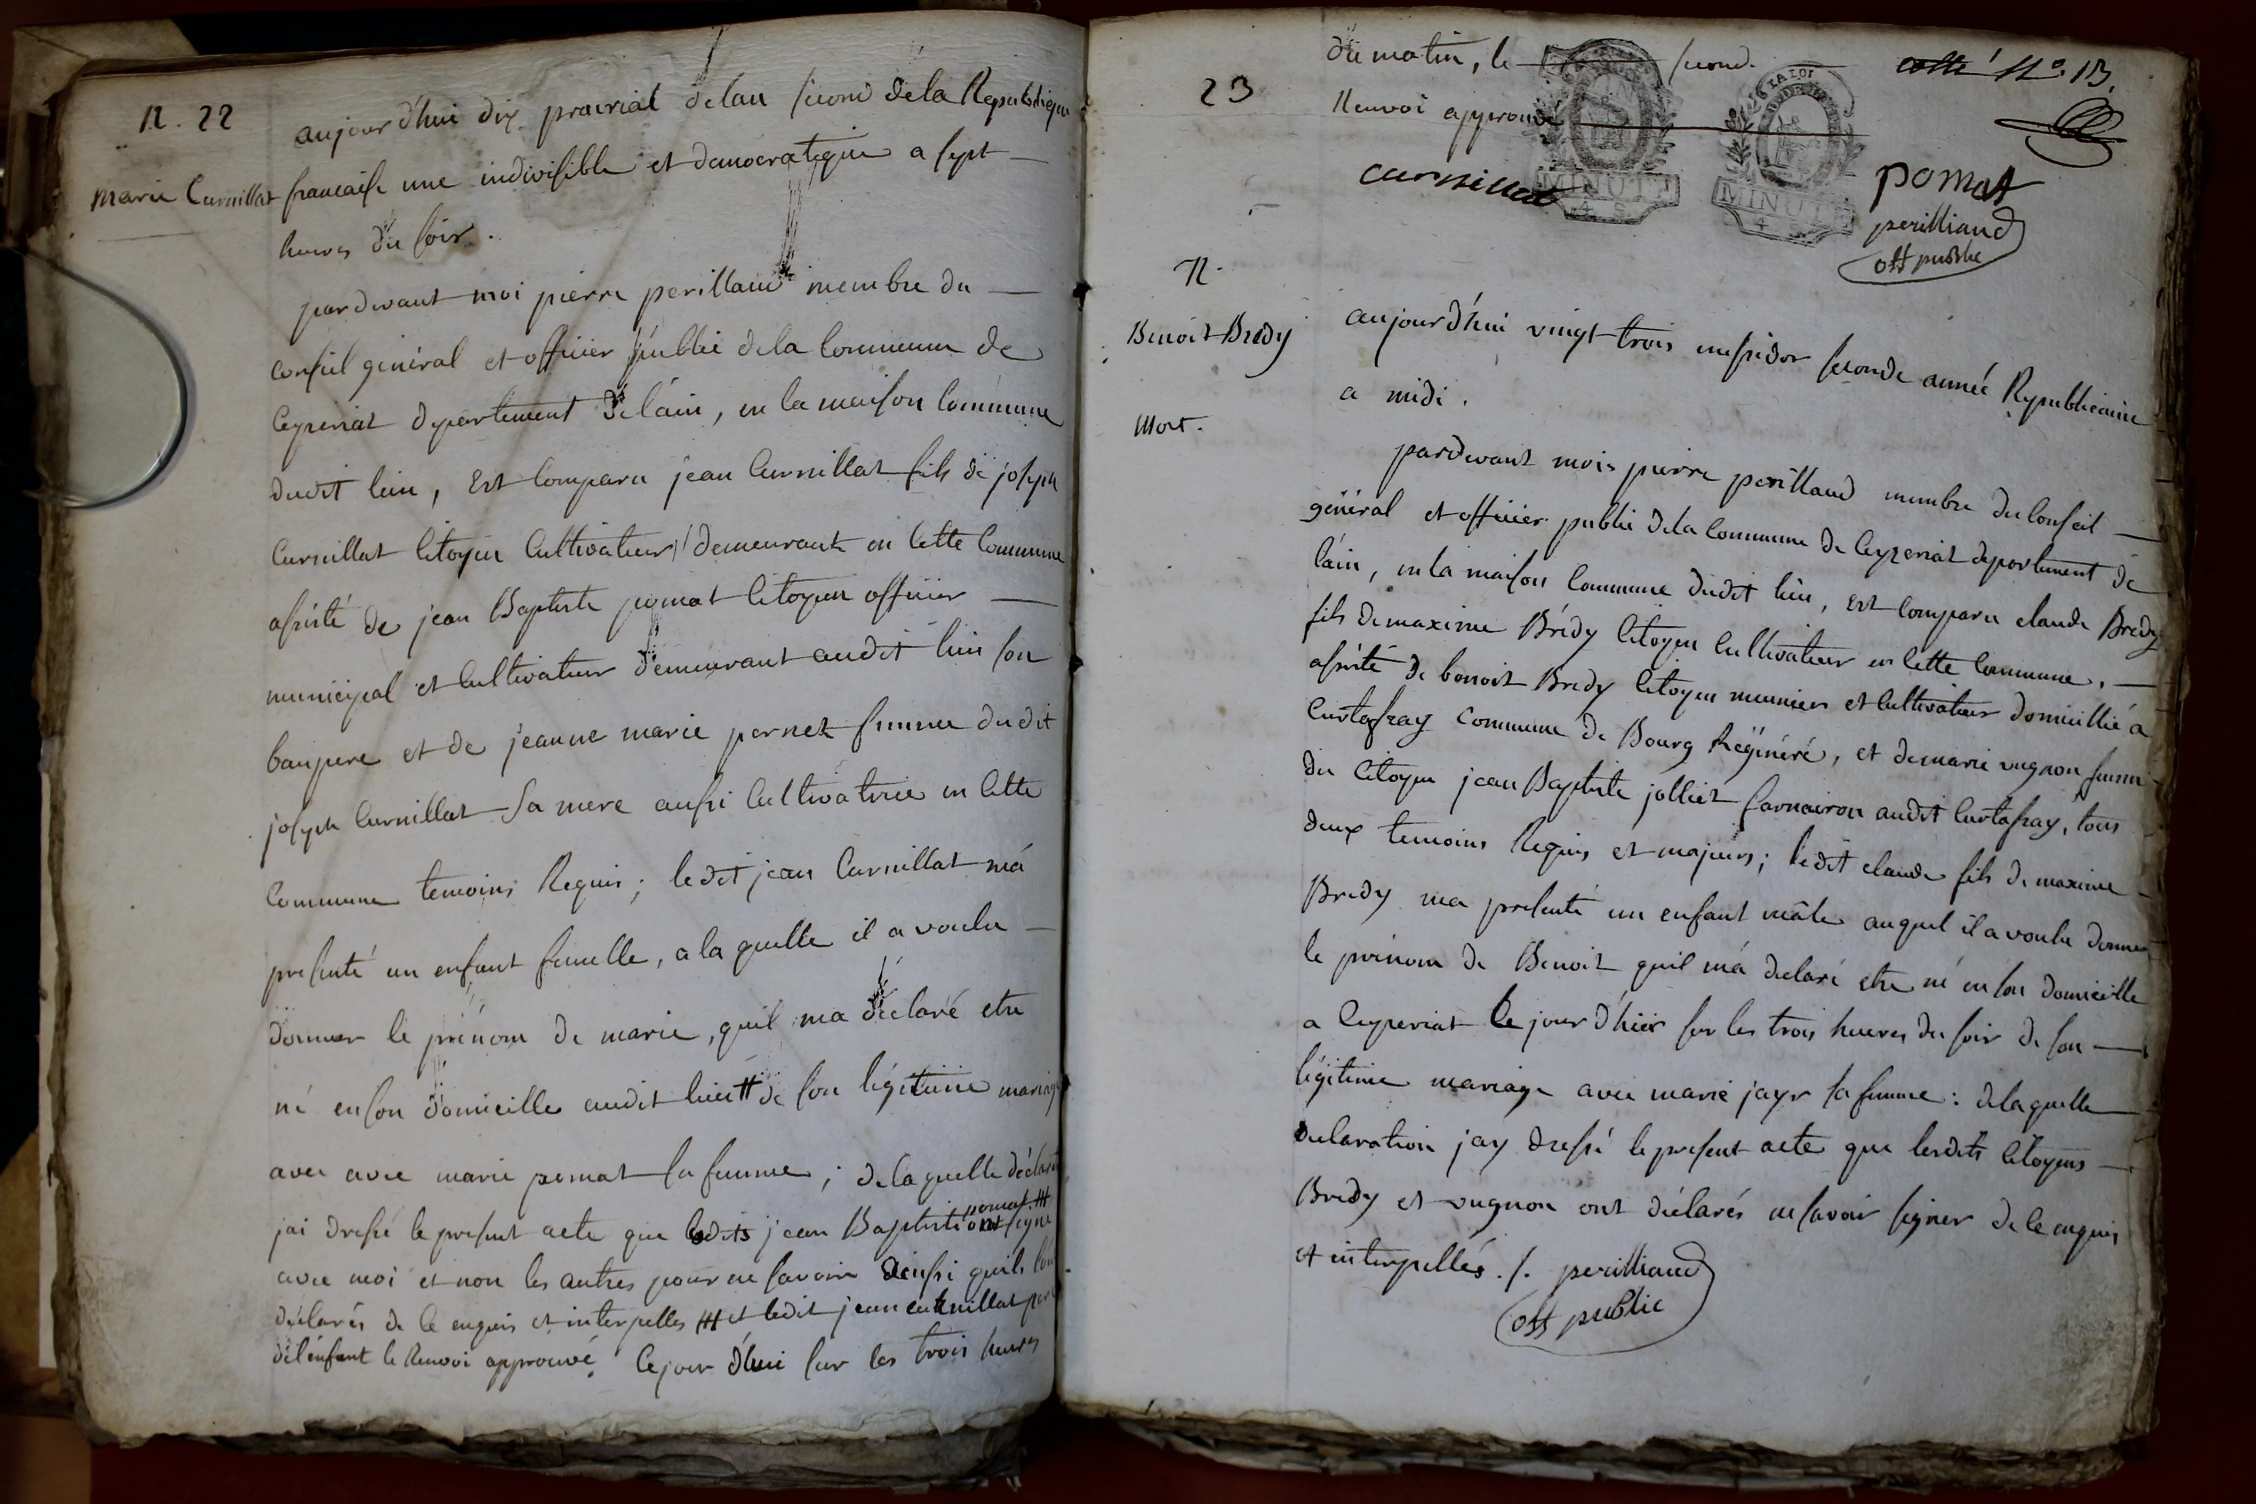 N. 22
Marie Curnillat
aujourd'hui dix prairial delan second dela Republique
francaise une indivisible et democratique a sept
heures du soir.
pardevant moi pierre perilland membre du
conseil général et officier public dela Commune de
Ceyzeriat departement delain, en la maison Commune
dudit lieu, Est Comparu jean Curnillat fils de joseph
Curnillat Citoyen Cultivateur demeurant en Cette Commune
assisté de jean Baptiste pomat Citoyen officier
municipal et Cultivateur demeurant audit lieu son
baupere et de jeanne marie pernet femme dudit
joseph Curnillat Sa mere aussi Cultivatrice en Cette
Commune temoins Requis; ledit jean Curnillat má
presenté un enfant femelle, a la quelle il a voulu
donner le prénom de marie, quil ma déclaré etre
né en son domicille audit lieu # de son légitime mariage
avec avec marie pomat sa femme; delaquelle déclarat
jai dressé le present acte que lesdits jean Baptiste pomat ont signé
avec moi et non les autres pour ne savoir ainsi quils lont
déclarés de Ce enquis et interpelles ## et ledit jean curnillat pere
del'enfant le Renvoi approuvé. Cejour d'hui sur les trois heures
23
du matin, le second.
Renvoi approuvé
cotté No. 13.
curnillat
LA LOI
MINUTE
4 S
MINUTE
4
pomat
perilliand
off public
N.
Benoit Bredy
Mort.
aujourd'hui vingt trois messidor seconde année Republicaine
a midi.
pardevant mois pierre perilland membre du Conseil
général et officier public dela Commune de Ceyzeriat departement de
láin, en la maison Commune dudit lieu, Est Comparu claude Bredy
fils de maxime Brédy Citoyen Cultivateur en Cette Commune,
assisté de benoit Bredy Citoyen meunier et Cultivateur domicillié a
Curtafray Commune de Bourg Régénéré, et de marie vugnon femme
du Citoyen jean Baptiste jolliet audit Curtafray, tous
deux temoins Requis et majeurs; ledit claude fils de maxime
Bredy ma presenté un enfant mâle auquel il a voulu donner
le prénom de Benoit quil má declaré etre né en son domicille
a Ceyzeriat le jour d'hier sur les trois heures du soir de son
légitime mariage avec marie jayr sa femme: delaquelle
declaration jay dressé le present acte que lesdits Citoyens
Bredy et vugnon ont déclarés ne savoir signer de Ce enquis
et interpellés. /. perilliand
off public